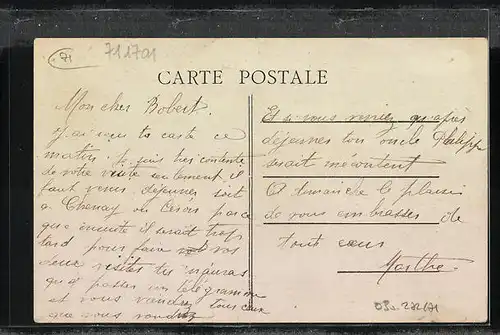 71
711701
CARTE POSTALE
Mon cher Robert.
J'ai reçu ta carte ce
matin. Je suis très contente
de votre visite seulement il
faut venir déjeuner soit
à Chenay ou parce
que ensuite il serait trop
tard pour faire vos
deux visites tu n'auras
qu'à passer un télégramme
et vous tous ceux
que vous
Et si vous veniez qu'après
déjeuner ton oncle Philippe
serait mécontent
A dimanche le plaisir
de vous embrasser de
tout cœur
Marthe